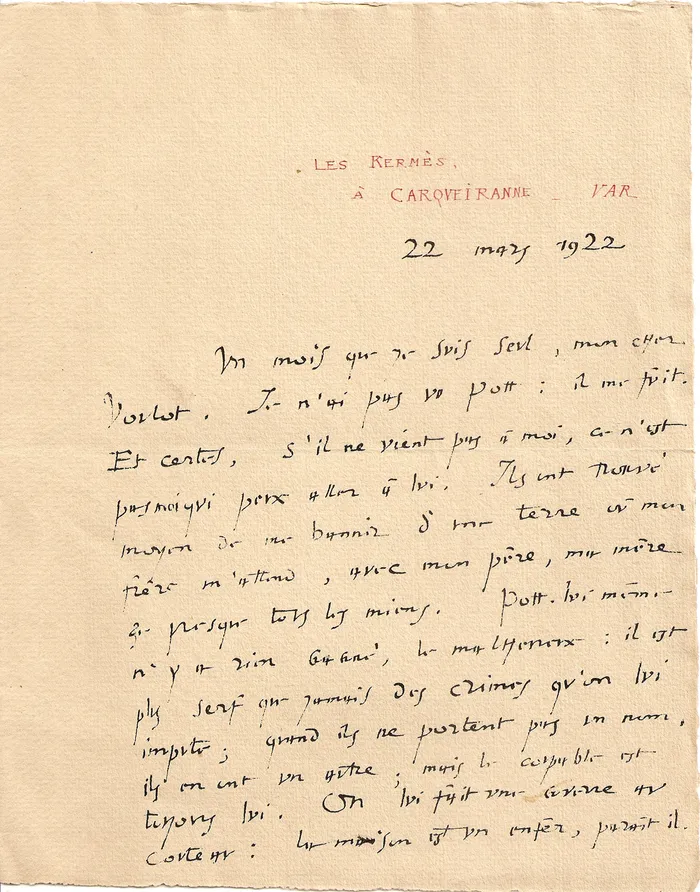 LES KERMÈS.
À CARQVEIRANNE _ VAR
22 mars 1922
Un mois que je suis seul, mon cher
Voulot. Je n'ai pas vu Pott : il me fuit.
Et certes, s'il ne vient pas à moi, ce n'est
pas moi qui peux aller à lui. Ils ont trouvé
moyen de me bannir d'une terre où mon
frère m'attend, avec mon père, ma mère
& presque tous les miens. Pott. lui même
n'y a rien gagné, le malheureux : il est
plus serf que jamais des crimes qu'on lui
impute ; quand ils ne portent pas un nom,
ils en ont un autre ; mais le coupable est
toujours lui. On lui fait une guerre au
couteau : la maison est un enfer, paraît il.